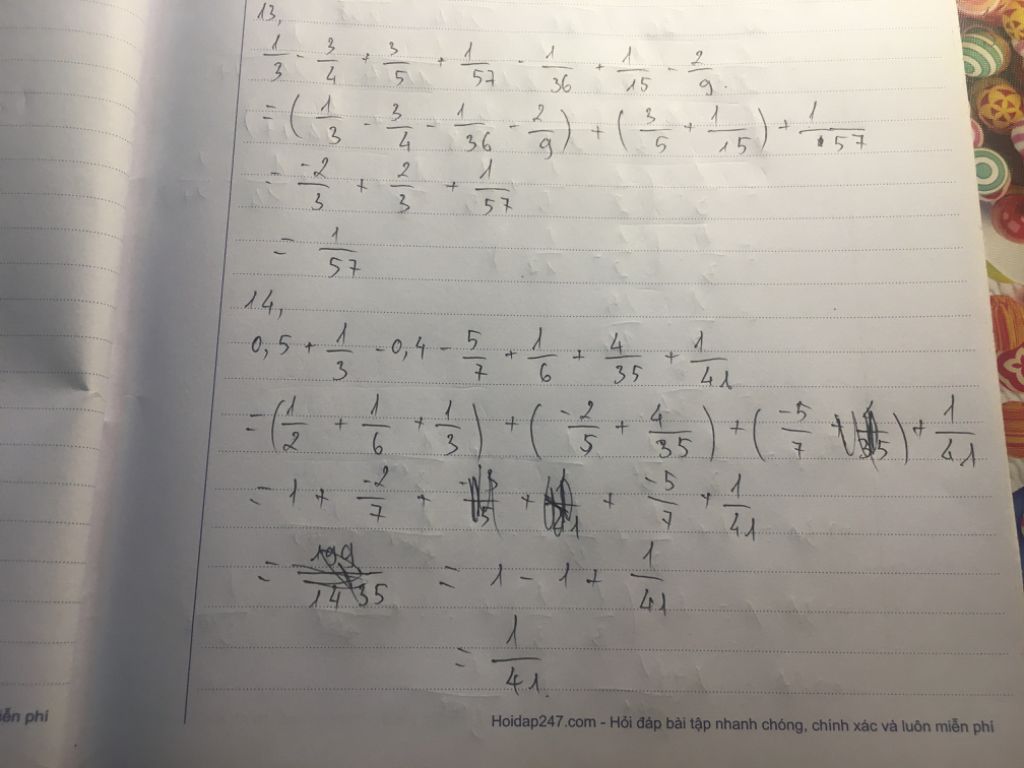 13,
1/3 - 3/4 + 3/5 + 1/57 - 1/36 + 1/15 - 2/9.
= (1/3 - 3/4 - 1/36 - 2/9) + (3/5 + 1/15) + 1/57
= -2/3 + 2/3 + 1/57
= 1/57
14,
0,5 + 1/3 - 0,4 - 5/7 + 1/6 + 4/35 + 1/41
= (1/2 + 1/6 + 1/3) + (-2/5 + 4/35) + (-5/7 ) + 1/41
= 1 + -2/7 + + + -5/7 + 1/41
= = 1 - 1 + 1/41
= 1/41.
iễn phí
Hoidap247.com - Hỏi đáp bài tập nhanh chóng, chính xác và luôn miễn phí